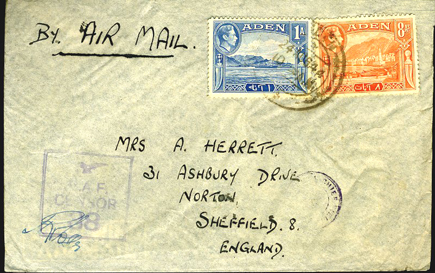 BY AIR MAIL.
ADEN
1A
ADEN
8As
MRS A. HERRETT.
31 ASHBURY DRIVE
NORTON,
SHEFFIELD. 8.
ENGLAND.
R.A.F.
CENSOR